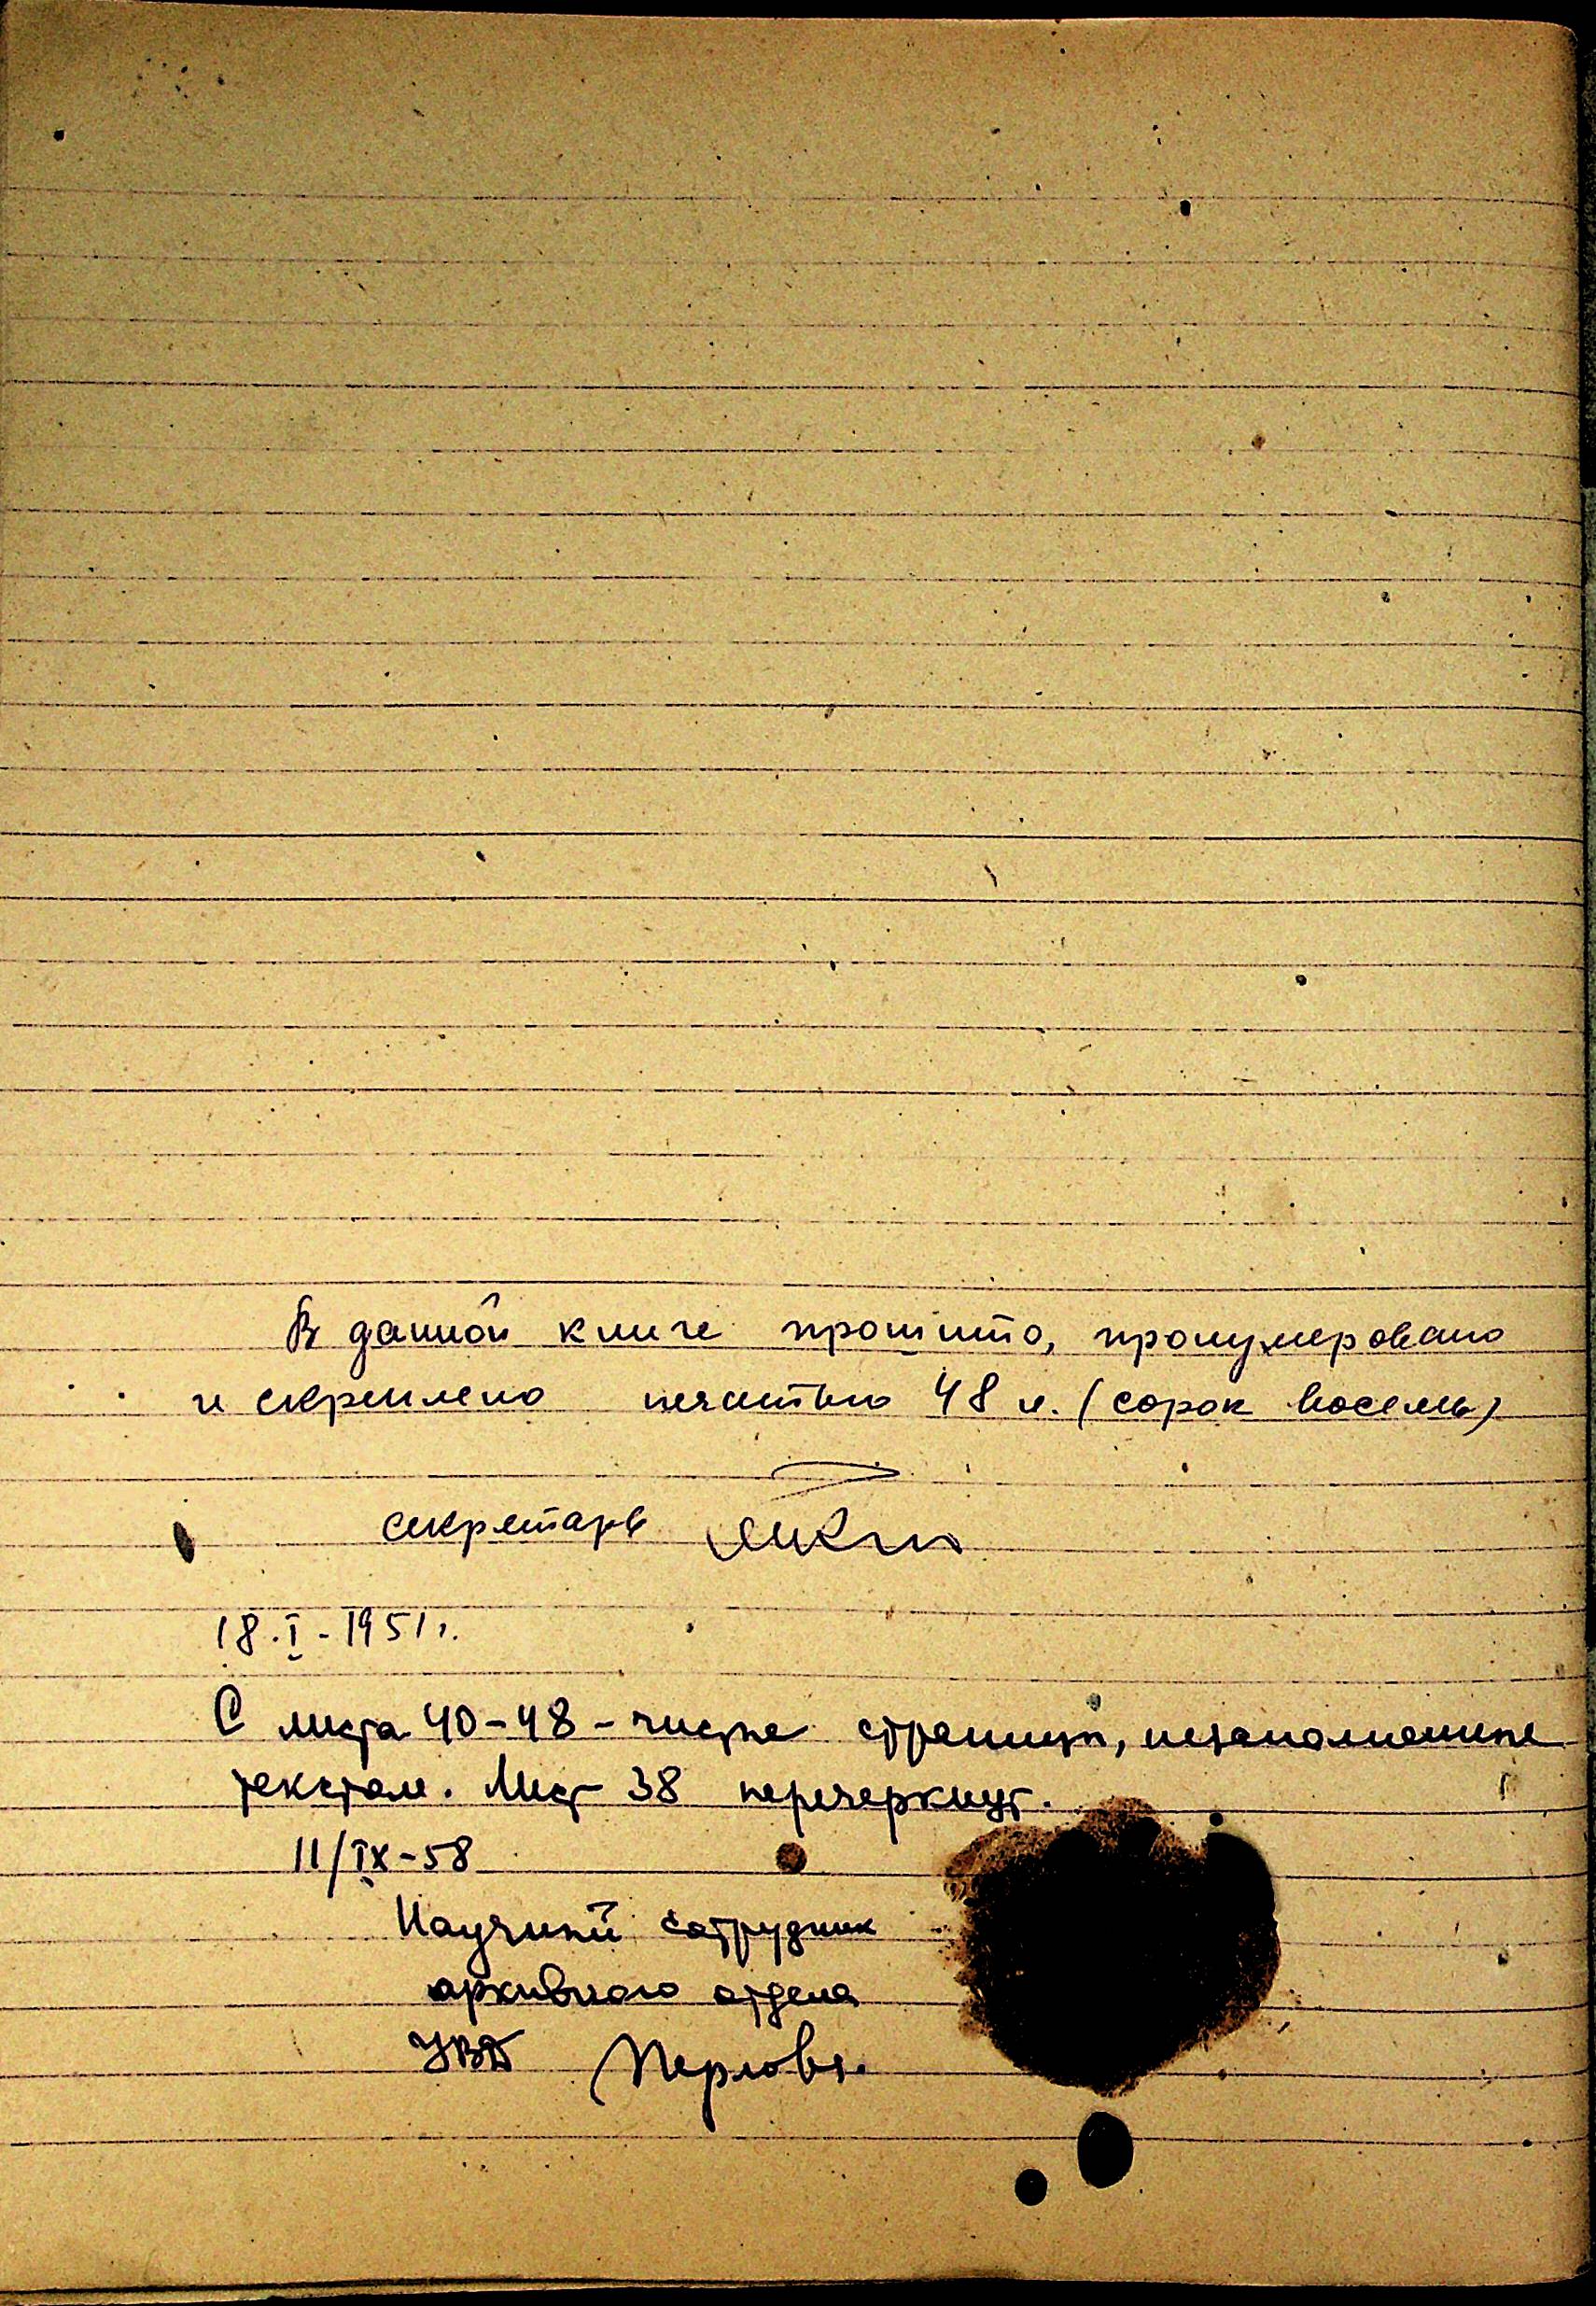 В данной книге прошито, пронумеровано
и скреплено печатью 48 л. (сорок восемь)
секретарь
18.I-1951г.
С листа 40-48 - чистые страницы, незаполненные
текстом. Лист 38 перечеркнут.
11/IX-58
Научный сотрудник
архивного отдела
УВД